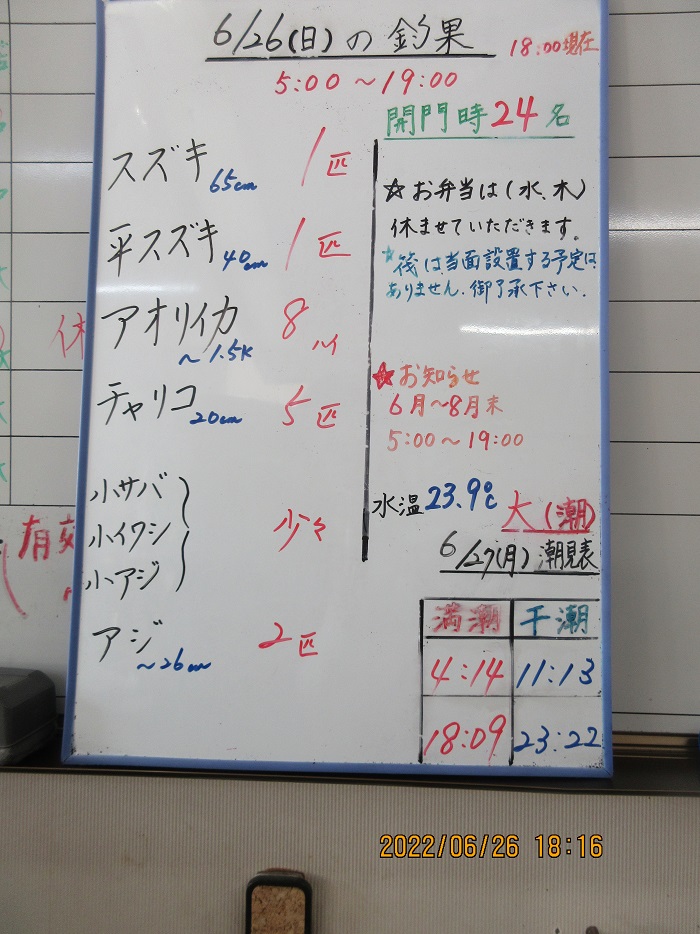 6/26(日)の釣果
18:00現在
5:00〜19:00
開門時24名
スズキ 65cm 1匹
平スズキ 40cm 1匹
アオリイカ 〜1.5K 8ハイ
チャリコ 20cm 5匹
小サバ
小イワシ
小アジ
少々
アジ 〜26cm 2匹
☆お弁当は(水、木)
休ませていただきます。
☆筏は当面設置する予定は
ありません。御了承下さい。
☆お知らせ
6月〜8月末
5:00〜19:00
水温23.9℃
大(潮)
6/27(月)潮見表
満潮 干潮
4:14 11:13
18:09 23:22
休
有効
2022/06/26 18:16